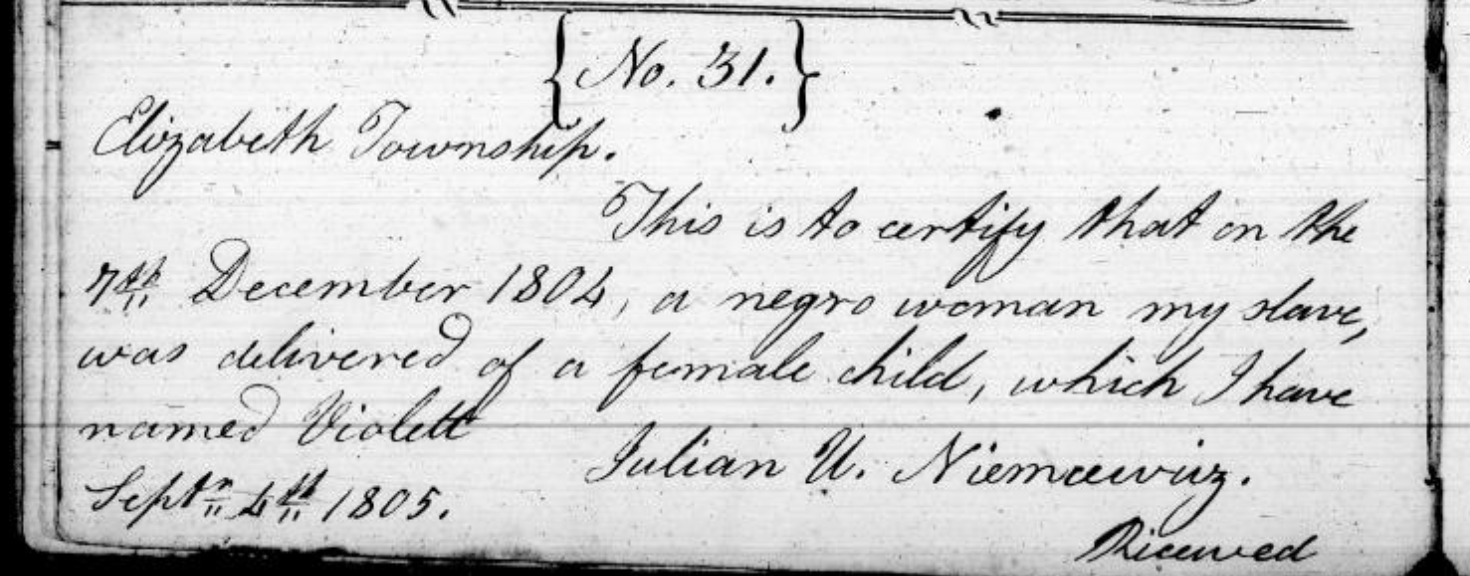 {No. 31.}
Elizabeth Township.
This is to certify that on the
7th December 1804, a negro woman my slave,
was delivered of a female child, which I have
named Violett
Julian U. Niemcewicz.
Septr 4th 1805.
Received